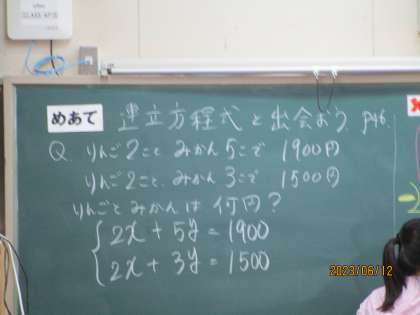 CLASS AP15
めあて 連立方程式と出会おう。 P46.
Q. りんご2ことみかん5こで 1900円
りんご2ことみかん3こで 1500円
りんごとみかんは何円?
2x + 5y = 1900
2x + 3y = 1500
2023/06/12